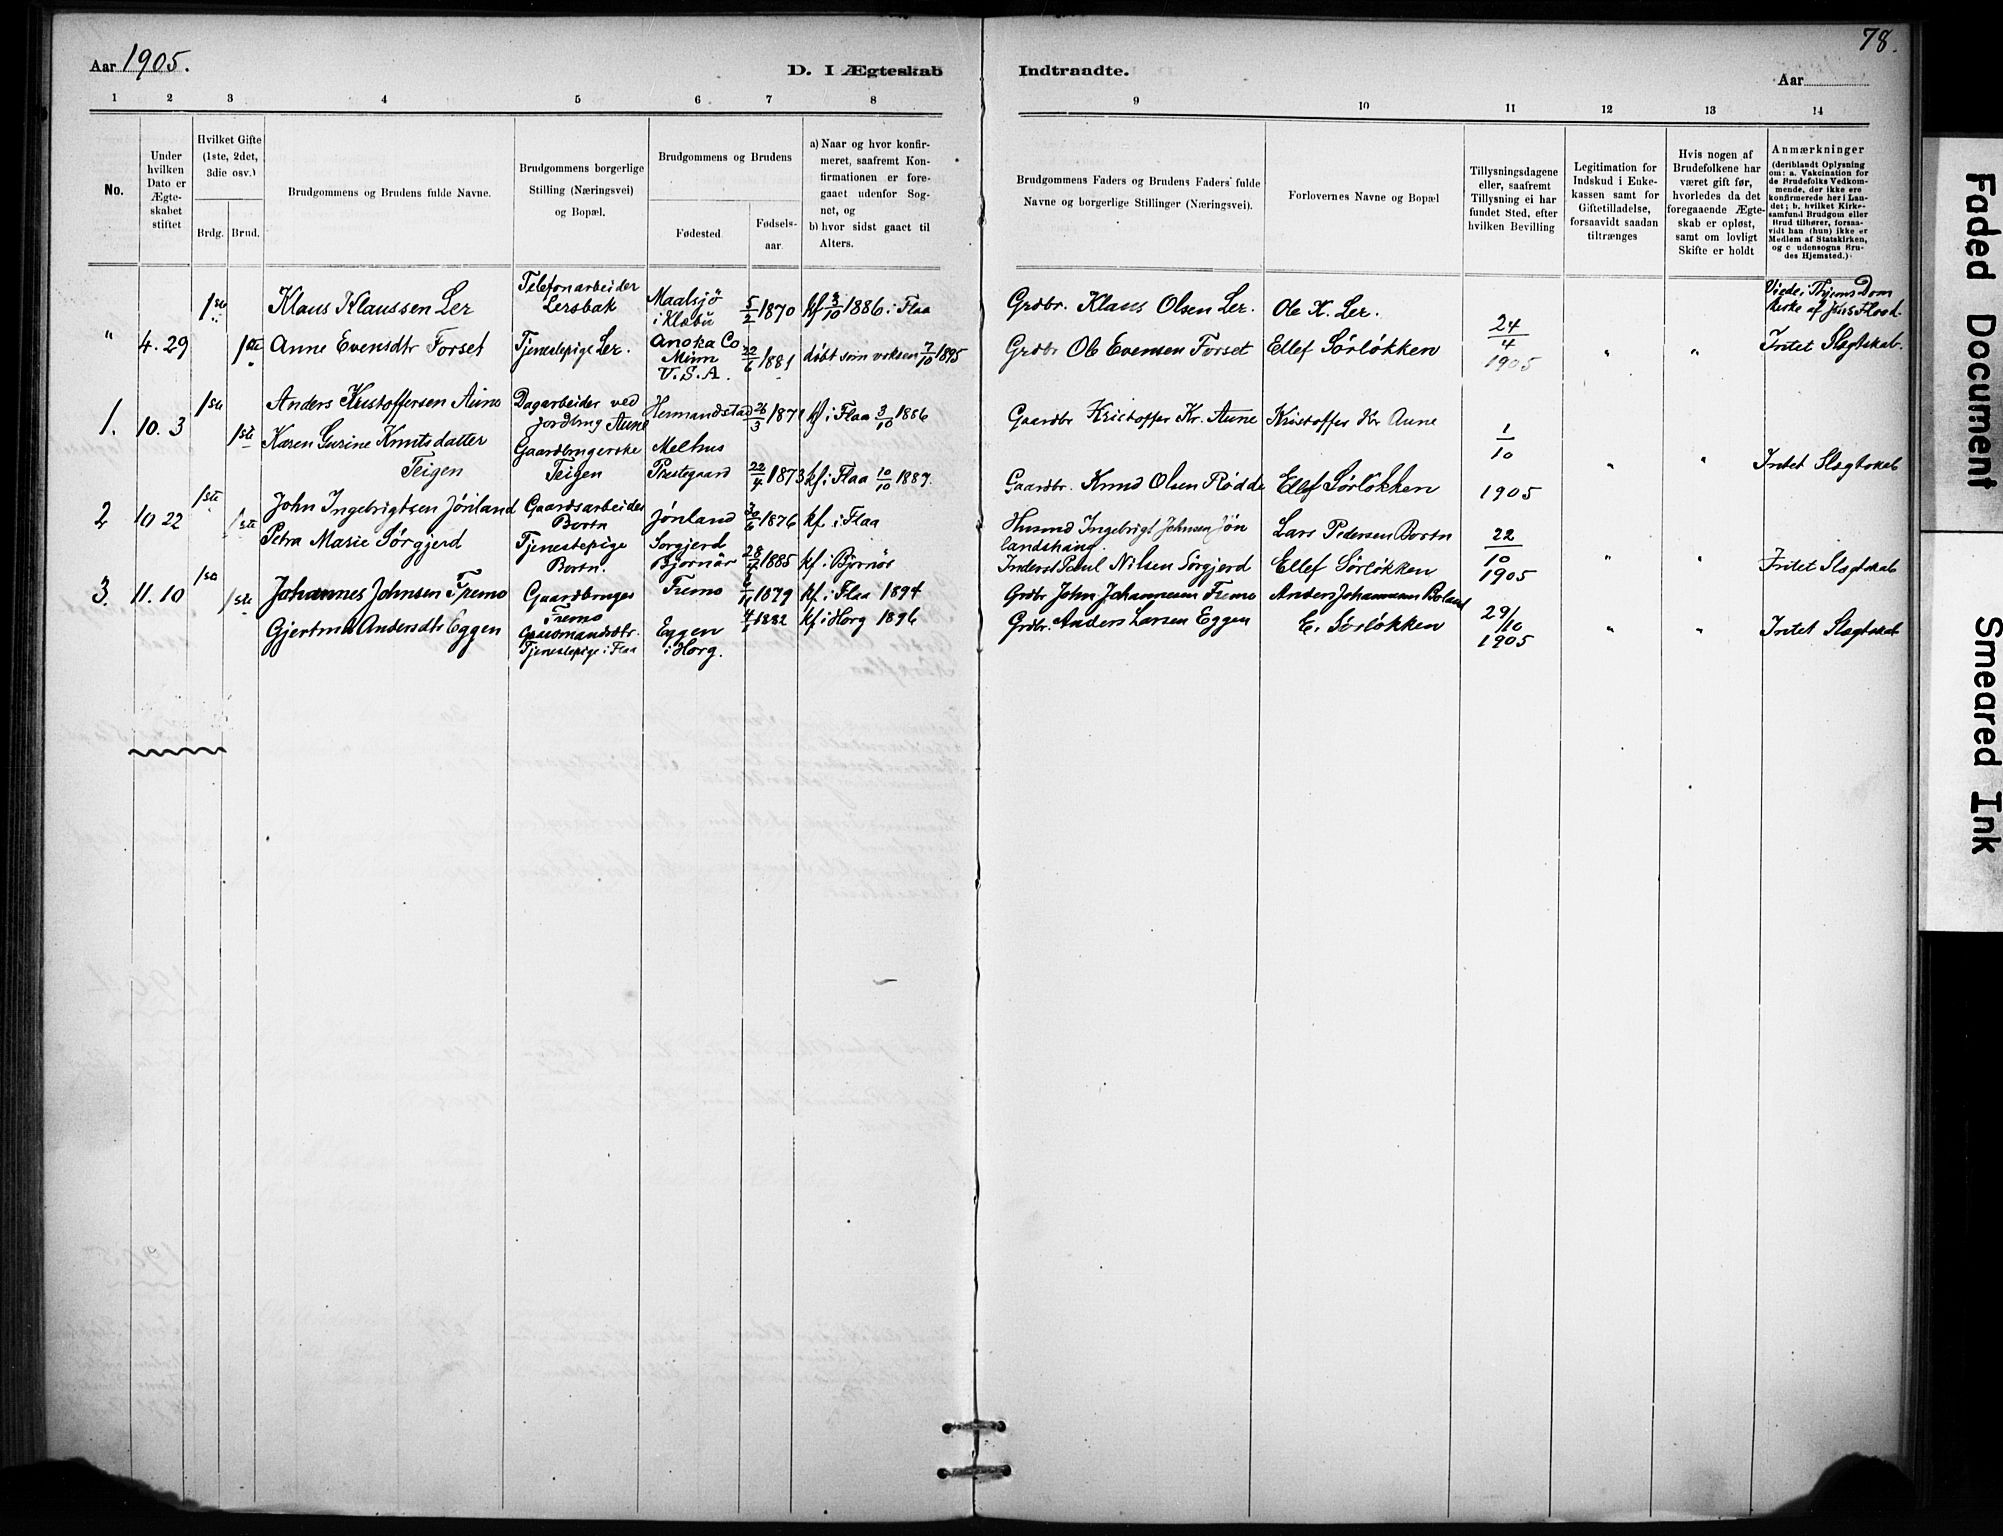 78.
Aar 1905.
D. I Ægteskab
Indtraadte.
Aar
1 2 3 4 5 6 7 8
9 10 11 12 13 14
No.
Under hvilken Dato er Ægteskabet stiftet
Hvilket Gifte (1ste, 2det, 3die osv.)
Brdg. Brud.
Brudgommens og Brudens fulde Navne.
Brudgommens borgerlige Stilling (Næringsvei) og Bopæl.
Brudgommens og Brudens
Fødested.
Fødselsaar.
a) Naar og hvor konfirmeret, saafremt Konfirmationen er foregaaet udenfor Sognet, og
b) hvor sidst gaaet til Alters.
Brudgommens Faders og Brudens Faders fulde Navne og borgerlige Stillinger (Næringsvei).
Forlovernes Navne og Bopæl
Tillysningsdagene eller, saafremt Tillysning ei har fundet Sted, efter hvilken Bevilling
Legitimation for Indskud i Enkekassen samt for Giftetilladelse, forsaavidt saadan tiltrænges
Hvis nogen af Brudefolkene har været gift før, hvorledes da det foregaaende Ægteskab er opløst, samt om lovligt Skifte er holdt
Anmærkninger
(deriblandt Oplysning om: a. Vakcination for de Brudefolks Vedkommende, der ikke ere konfirmerede her i Landet; b. hvilket Kirkesamfund Brudgom eller Brud tilhører, forsaavidt han (hun) ikke er Medlem af Statskirken, og c udensogns Brudes Hjemsted.)
1ste Klaus Klaussen Ler Telefonarbeider Lersbak Maalsjö i Klæbu 5/2 1870 kf 3/10 1886 i Flaa Grdbr. Klaus Olsen Ler. Ole K. Ler. Viede i Thjems Domkirke af
" 4.29 1ste Anne Evensdtr Forset Tjenestepige Ler. Anoka Co Minn U.S.A. 22/6 1881 døbt som voksen 7/10 1895 Grdbr Ole Evensen Forset Ellef Sørløkken 24/4 1905 " " Intet Slægtskab.
1. 10.3 1ste Anders Kristoffersen Aune Dagarbeider ved Jordbrug Aune Hermanstad 26/3 1871 kf i Flaa 3/10 1886 Gaardbr Kristoffer Kr. Aune Kristoffer Kr Aune
1ste Karen Gurine Knutsdatter Teigen Gaardbrugerske Teigen Melhus Prestegaard 22/4 1873 kf i Flaa 10/10 1889. Gaardbr. Knud Olsen Rødde Ellef Sørløkken 1/10 1905 " " Intet Slægtskab
2 10 22 1ste John Ingebrigtsen Jönland Gaardsarbeider Bortn Jönland 30/6 1876 kf. i Flaa Husmd Ingebrigt Johnsen Jönlandshaug. Lars Pedersen Bortn
1ste Petra Marie Sørgjerd Tjenestepige Bortn. Sørgjerd Bjørnør 28/4 1885 kf. i Bjørnør Inderst Paul Nilsen Sørgjerd Ellef Sørløkken 22/10 1905 " " Intet Slægtskab
3. 11.10 1ste Johannes Johnsen Fremo Gaardbruger Fremo Fremo 1879 kf. i Flaa 1894 Grdbr John Johannesen Fremo Anders Johannesen
1ste Gjertine Andersdtr Eggen Gaardmandsdtr. Tjenestepige i Flaa Eggen i Horg. 1882 kf. i Horg 1896 Grdbr. Anders Larsen Eggen E. Sørløkken 29/10 1905 " " Intet Slægtskab
Faded Document
Smeared Ink